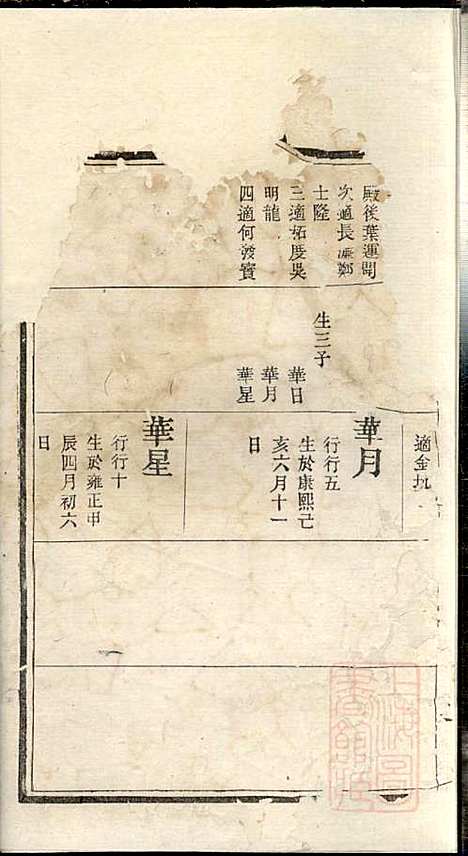 殿後葉運開
次適長濂鄭
士隆
三適柘度吳
明龍
四適何發賓
生三子
華日
華月
華星
適金坑
華月
行行五
生於康熙己
亥六月十一
日
華星
行行十
生於雍正甲
辰四月初六
日
上海圖書館藏